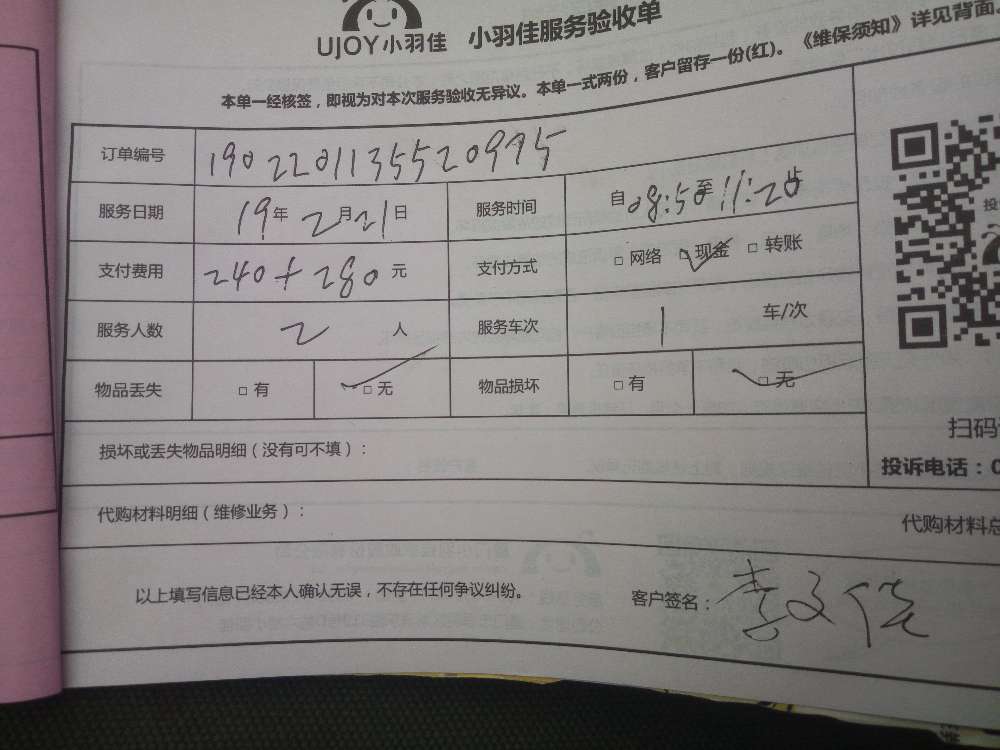 UJOY小羽佳 小羽佳服务验收单
本单一经核签，即视为对本次服务验收无异议。本单一式两份，客户留存一份(红)。《维保须知》详见背面。
订单编号 19022011355520975
服务日期 19年2月21日 服务时间 自08:50至11:20止
支付费用 240+280元 支付方式 □网络 □现金 □转账
服务人数 2人 服务车次 1车/次
物品丢失 □有 □无 物品损坏 □有 □无
损坏或丢失物品明细（没有可不填）：
扫码
投诉电话：0
代购材料明细（维修业务）：
代购材料总
以上填写信息已经本人确认无误，不存在任何争议纠纷。
客户签名：李文